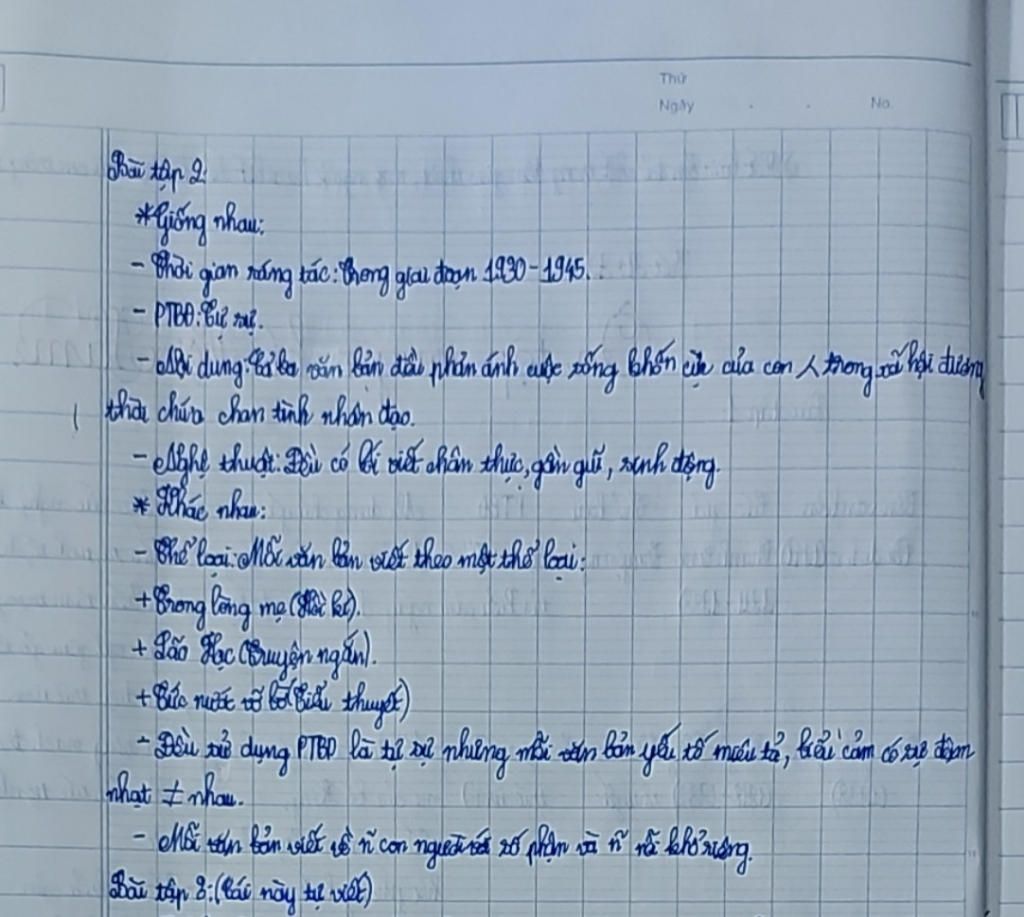 Thứ
Ngày . . No.
Bài tập 2:
*Giống nhau:
- Thời gian sáng tác: Trong giai đoạn 1930-1945.
- PTBĐ: Tự sự.
- Nội dung: Cả ba văn bản đều phản ánh cuộc sống khốn cùng của con người trong xã hội đương
thời chứa chan tình nhân đạo.
- Nghệ thuật: Đều có lối viết chân thực, gần gũi, sinh động.
* Khác nhau:
- Thể loại: Mỗi văn bản viết theo một thể loại:
+ Trong lòng mẹ (Hồi kí).
+ Lão Hạc (Truyện ngắn).
+ Tức nước vỡ bờ (Tiểu thuyết)
- Đều sử dụng PTBĐ là tự sự nhưng mỗi văn bản yếu tố miêu tả, biểu cảm có sự đậm
nhạt ≠ nhau.
- Mỗi văn bản viết về ~ con người với số phận và ~ nỗi khổ riêng.
Bài tập 3: (Cái này tự viết)